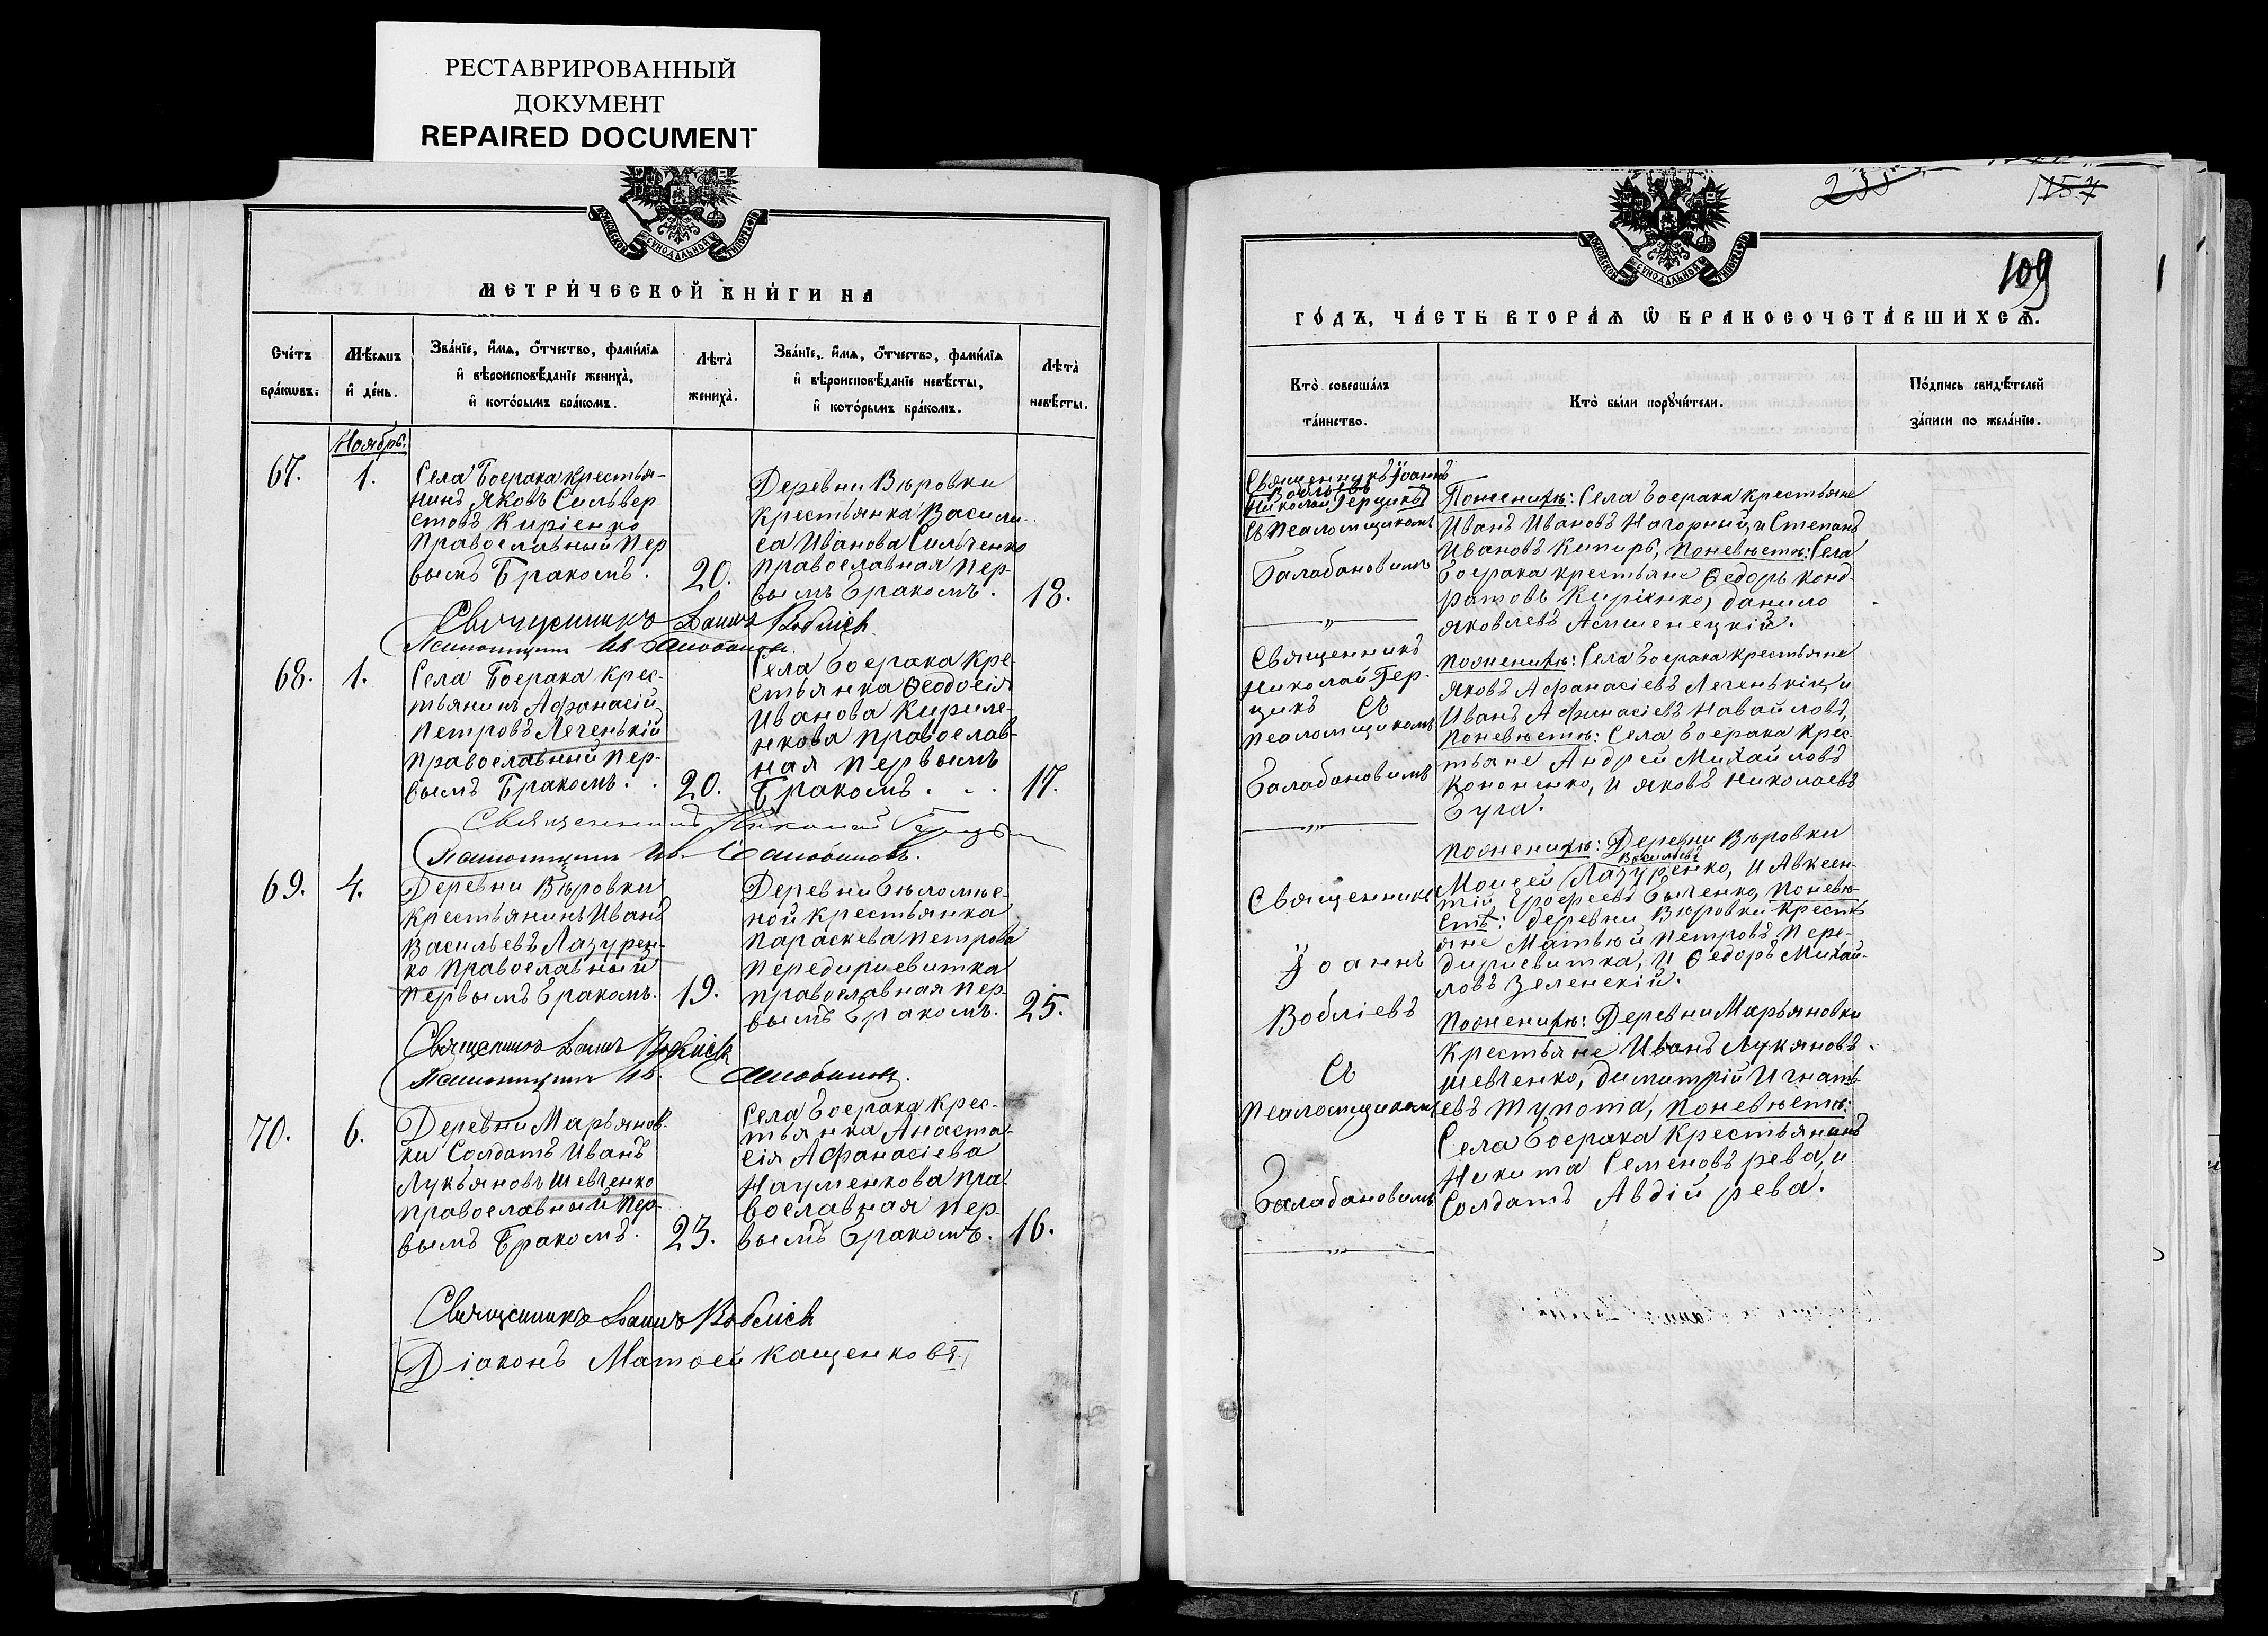 РЕСТАВРИРОВАННЫЙ
ДОКУМЕНТ
REPAIRED DOCUMENT
МОСКОВСКОЙ СѴНОДАЛЬНОЙ ТИПОГРАФІИ
МЕТРИ́ЧЕСКОЙ КНИ́ГИ НА
Сче́тъ
бра́кѡвъ.
Мѣ́сѧцъ
и҆ де́нь.
Зва́нїе, и҆́мѧ, ѻ҆́тчество, фами́лїѧ
и҆ вѣроисповѣ́данїе жениха̀,
и҆ кото́рымъ бра́комъ.
Лѣта̀
жениха̀.
Зва́нїе, и҆́мѧ, ѻ҆́тчество, фами́лїѧ
и҆ вѣроисповѣ́данїе невѣ́сты,
и҆ кото́рымъ бра́комъ.
Лѣта̀
невѣ́сты.
Ноябрь.
67.
1.
Села Боерака крестья-
нинъ Яковъ Сильвер
стовъ Киріенко
православный пер
вымъ бракомъ.
20.
Деревни Вѣровки
крестьянка Васили-
са Иванова Сильченко
православная пер-
вымъ бракомъ.
18.
Священникъ Іоаннъ Воблієв
Псаломщикъ Ив. Балабановъ
68.
1.
Села Боерака крес-
тьянинъ Афанасій
Петровъ Легенькій
православный пер-
вымъ бракомъ.
20.
Села Боерака кре-
стьянка Ѳеодосія
Иванова Кириле-
нкова православ-
ная первымъ
бракомъ.
17.
Священникъ Николай Герцикъ
Псаломщикъ Ив. Балабановъ.
69.
4.
Деревни Вѣровки
крестьянинъ Иванъ
Васильевъ Лазурен-
ко православный
первымъ бракомъ.
19.
Деревни Бѣломѣс-
ной крестьянка
Параскева Петрова
Передириевитка
православная пер-
вымъ бракомъ.
25.
Священникъ Іоаннъ Воблієв
Псаломщикъ Ив. Балабановъ.
70.
6.
Деревни Марьянов-
ки Солдатъ Иванъ
Лукьяновъ Шевченко
православный пер-
вымъ бракомъ.
23.
Села Боерака крес-
тьянка Анаста-
сія Афанасіева
Науменкова пра-
вославная пер-
вымъ бракомъ.
16.
Священникъ Іоаннъ Воблієв
Діаконъ Матвей Кащенковъ
157
109
МОСКОВСКОЙ СѴНОДАЛЬНОЙ ТИПОГРАФІИ
ГО́ДЪ, ЧА́СТЬ ВТОРА́Ѧ Ѡ҆ БРАКОСОЧЕТА́ВШИХСѦ.
Кто̀ соверша́лъ
та́инство.
Кто̀ бы́ли порꙋчи́тели.
По́дпись свидѣ́телей
за́писи по жела́нїю.
Священникъ Іоаннъ
Воблієвъ
Николай Герцикъ
съ псаломщикомъ
Балабановимъ
По женихѣ: Села Боерака крестьяне
Иванъ Ивановъ Нагорний, и Степанъ
Ивановъ Кипиръ, по невѣстѣ: Села
Боерака крестьяне Ѳедоръ Конд-
ратовъ Киріенко, Данило
Яковлевъ
Священникъ
Николай Гер-
цикъ съ
псаломщикомъ
Балабановимъ
По женихѣ: Села Боерака крестьяне
Яковъ Афанасіевъ Легенькій, и
Иванъ Афанасіевъ
по невѣстѣ: Села Боерака крес-
тьяне Андрей Михайловъ
Кононенко, и Яковъ Николаевъ
Буга.
Священникъ
Іоаннъ
Воблієвъ
Съ
псаломщикомъ
Балабановимъ
По женихѣ: Деревни Вѣровки
Васильевъ
Моисей Лазуренко, и Авксен-
тій Ерофеевъ Быченко, по невѣ-
стѣ: деревни Вѣровки кресть
яне Матвей Петровъ Пере-
дириевитка, и Ѳедоръ Михай-
ловъ Зеленскій.
По женихѣ: Деревни Марьяновки
крестьяне Иванъ Лукяновъ
Шевченко, Димитрій Игнать
евъ Тупота, по невѣстѣ:
Села Боерака крестьянинъ
Никита Семеновъ Рева, и
Солдатъ Авдій Рева.